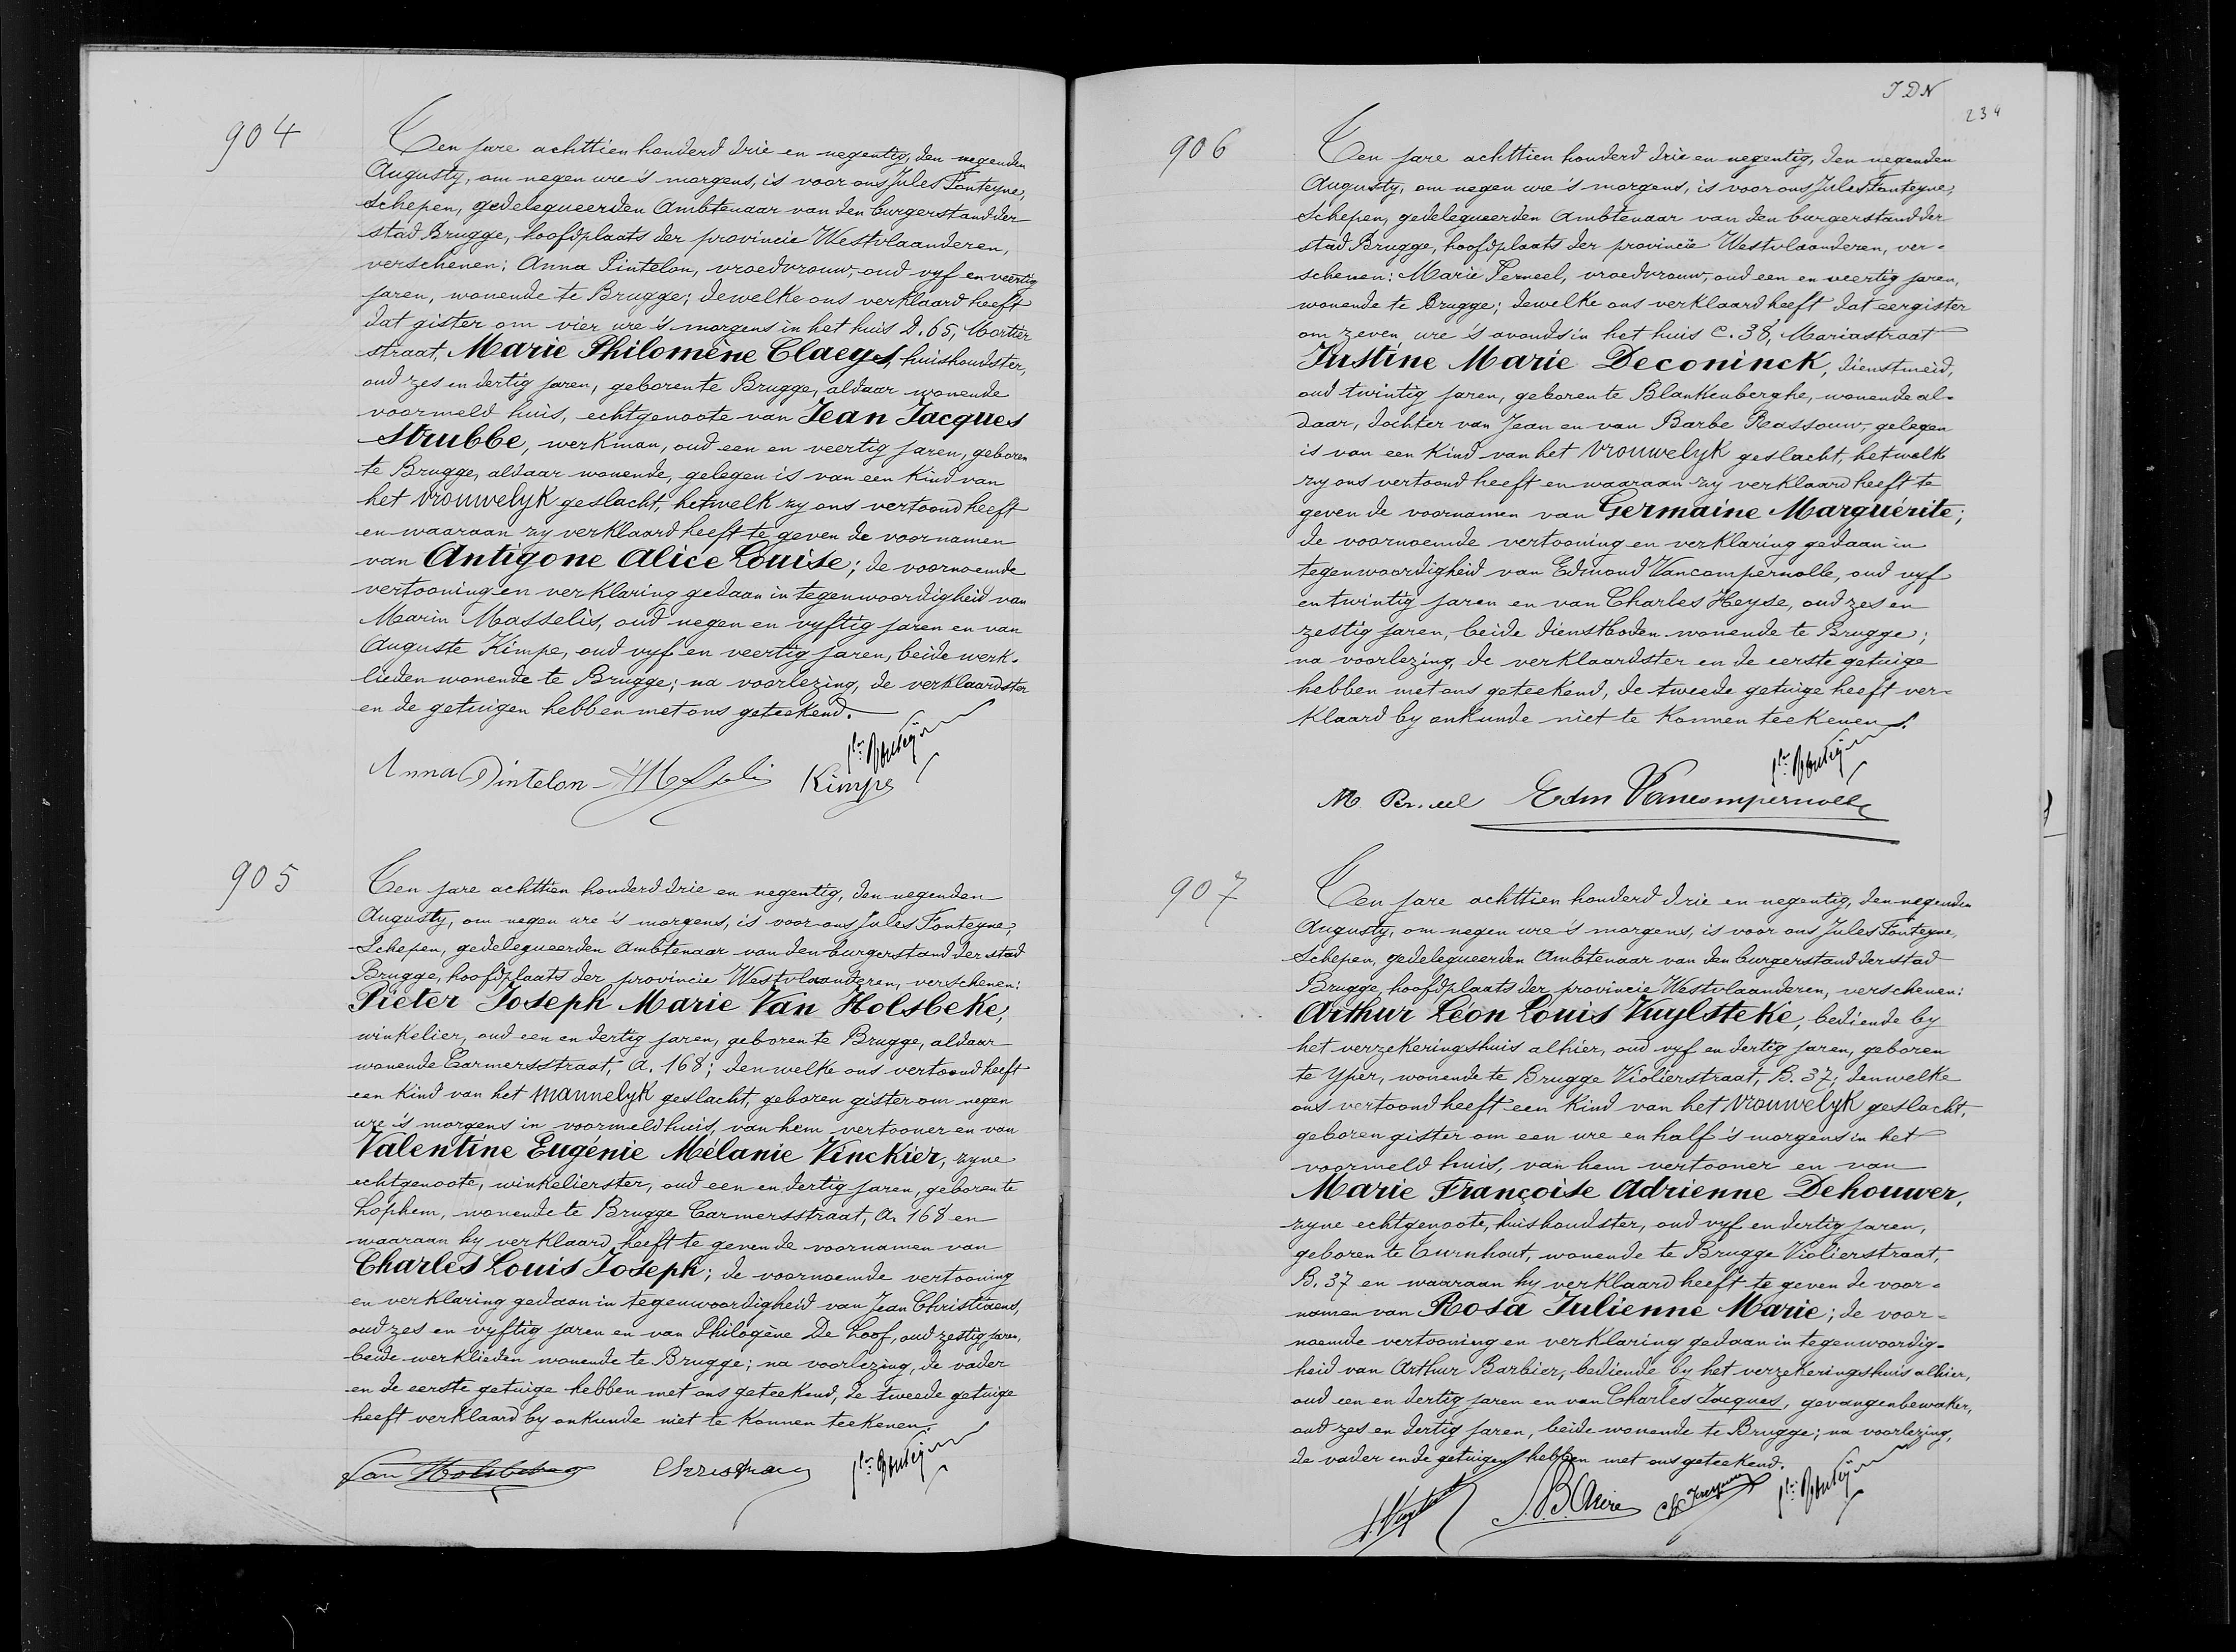 904
Ten jare achttien honderd drie en negentig, den negenden
Augusty, om negen ure 's morgens, is voor ons Jules Fonteyne,
Schepen, gedelegueerden Ambtenaar van den burgerstand der
stad Brugge, hoofdplaats der provincie Westvlaanderen,
verschenen: Anna Pintelon, vroedvrouw, oud vyf en veertig
jaren, wonende te Brugge; dewelke ons verklaard heeft
dat gister om vier ure 's morgens in het huis D. 65, Mortier
straat, Marie Philomène Claeys, huishoudster,
oud zes en dertig jaren, geboren te Brugge, aldaar wonende
voormeld huis, echtgenoote van Jean Jacques
Strubbe, werkman, oud een en veertig jaren, geboren
te Brugge, aldaar wonende, gelegen is van een kind van
het vrouwelyk geslacht, hetwelk zy ons vertoond heeft
en waaraan zy verklaard heeft te geven de voornamen
van Antigone Alice Louise; de voornoemde
vertooning en verklaring gedaan in tegenwoordigheid van
Marin Masselis, oud negen en vyftig jaren en van
Auguste Kimpe, oud vyf en veertig jaren, beide werk-
lieden wonende te Brugge; na voorlezing, de verklaardster
en de getuigen hebben met ons geteekend.
Anna Pintelon Kimpe
905
Ten jare achttien honderd drie en negentig, den negenden
Augusty, om negen ure 's morgens, is voor ons Jules Fonteyne,
Schepen, gedelegueerden Ambtenaar van den burgerstand der stad
Brugge, hoofdplaats der provincie Westvlaanderen, verschenen:
Pieter Joseph Marie Van Holsbeke,
winkelier, oud een en dertig jaren, geboren te Brugge, aldaar
wonende Carmersstraat, A. 168; denwelke ons vertoond heeft
een kind van het mannelyk geslacht, geboren gister om negen
ure 's morgens in voormeld huis, van hem vertooner en van
Valentine Eugénie Mélanie Vinckier, zyne
echtgenoote, winkelierster, oud een en dertig jaren, geboren te
Lophem, wonende te Brugge Carmersstraat, A. 168 en
waaraan hy verklaard heeft te geven de voornamen van
Charles Louis Joseph; de voornoemde vertooning
en verklaring gedaan in tegenwoordigheid van Jean Christiaens,
oud zes en vyftig jaren en van Philogène De Loof, oud zestig jaren,
beide werklieden wonende te Brugge; na voorlezing, de vader
en de eerste getuige hebben met ons geteekend, de tweede getuige
heeft verklaard by onkunde niet te konnen teekenen.
Van Holsbeke
JDN
234
906
Ten jare achttien honderd drie en negentig, den negenden
Augusty, om negen ure 's morgens, is voor ons Jules Fonteyne,
Schepen, gedelegueerden Ambtenaar van den burgerstand der
stad Brugge, hoofdplaats der provincie Westvlaanderen, ver-
schenen: Marie Perneel, vroedvrouw, oud een en veertig jaren,
wonende te Brugge; dewelke ons verklaard heeft dat eergister
om zeven ure 's avonds in het huis C. 38, Mariastraat
Justine Marie Deconinck, dienstmeid,
oud twintig jaren, geboren te Blankenberghe, wonende al-
daar, dochter van Jean en van Barbe Rassouw, gelegen
is van een kind van het vrouwelyk geslacht, hetwelk
zy ons vertoond heeft en waaraan zy verklaard heeft te
geven de voornamen van Germaine Marguérite;
de voornoemde vertooning en verklaring gedaan in
tegenwoordigheid van Edmond Vancompernolle, oud vyf
en twintig jaren en van Charles Heyse, oud zes en
zestig jaren, beide dienstboden wonende te Brugge;
na voorlezing, de verklaardster en de eerste getuige
hebben met ons geteekend, de tweede getuige heeft ver-
klaard by onkunde niet te konnen teekenen.
M. Perneel Edm Vancompernolle
907
Ten jare achttien honderd drie en negentig, den negenden
Augusty, om negen ure 's morgens, is voor ons Jules Fonteyne,
Schepen, gedelegueerden Ambtenaar van den burgerstand der stad
Brugge, hoofdplaats der provincie Westvlaanderen, verschenen:
Arthur Léon Louis Vuylsteke, bediende by
het verzekeringshuis alhier, oud vyf en dertig jaren, geboren
te Yper, wonende te Brugge Violierstraat, B. 37; denwelke
ons vertoond heeft een kind van het vrouwelyk geslacht,
geboren gister om een ure en half 's morgens in het
voormeld huis, van hem vertooner en van
Marie Françoise Adrienne Dehouwer,
zyne echtgenoote, huishoudster, oud vyf en dertig jaren,
geboren te Turnhout, wonende te Brugge Violierstraat,
B. 37 en waaraan hy verklaard heeft te geven de voor-
namen van Rosa Julienne Marie; de voor-
noemde vertooning en verklaring gedaan in tegenwoordig-
heid van Arthur Barbier, bediende by het verzekeringshuis alhier,
oud een en dertig jaren en van Charles Jacques, gevangenbewaker,
oud zes en dertig jaren, beide wonende te Brugge; na voorlezing,
de vader en de getuigen hebben met ons geteekend.